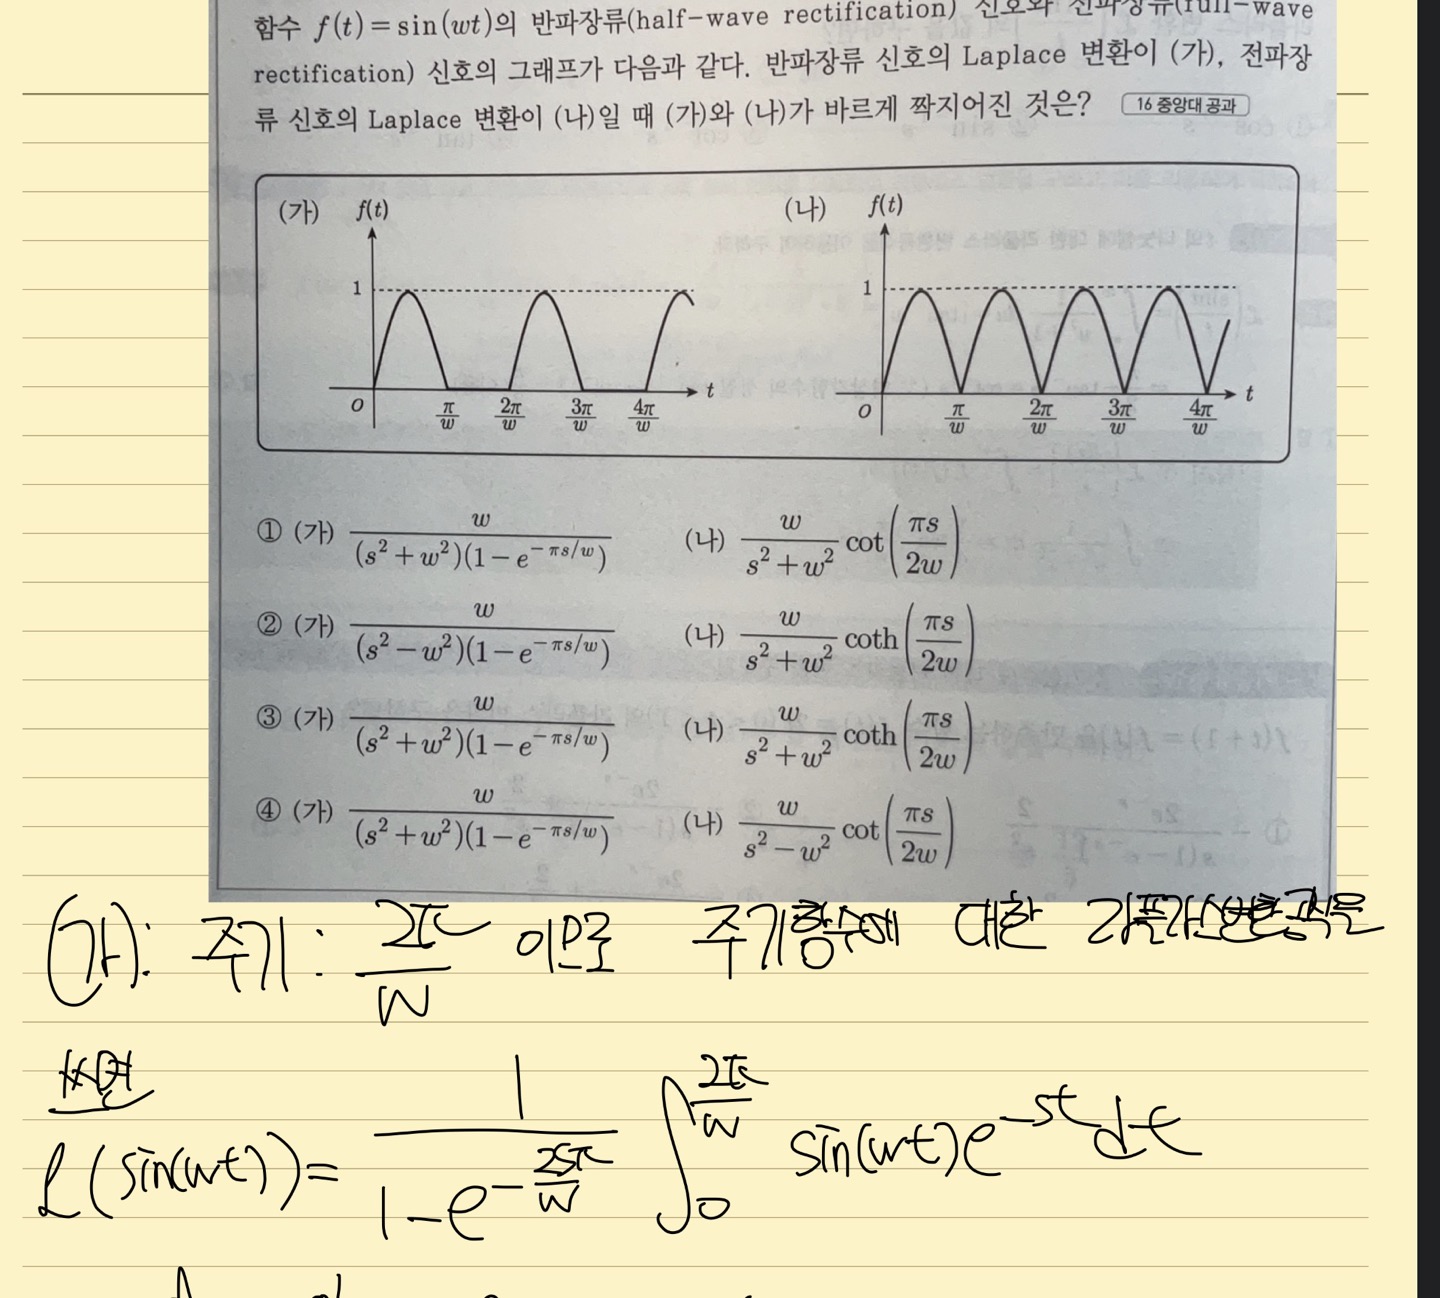 함수 f(t)=sin(wt)의 반파장류(half-wave rectification) 신호와 전파장류(full-wave
rectification) 신호의 그래프가 다음과 같다. 반파장류 신호의 Laplace 변환이 (가), 전파장
류 신호의 Laplace 변환이 (나)일 때 (가)와 (나)가 바르게 짝지어진 것은? 16 중앙대 공과
(가) f(t) 1 O π/w 2π/w 3π/w 4π/w t
(나) f(t) 1 O π/w 2π/w 3π/w 4π/w t
① (가) w/((s²+w²)(1-e^(-πs/w))) (나) w/(s²+w²) cot(πs/2w)
② (가) w/((s²-w²)(1-e^(-πs/w))) (나) w/(s²+w²) coth(πs/2w)
③ (가) w/((s²+w²)(1-e^(-πs/w))) (나) w/(s²+w²) coth(πs/2w)
④ (가) w/((s²+w²)(1-e^(-πs/w))) (나) w/(s²-w²) cot(πs/2w)
(가): 주기: 2π/w 이므로 주기함수에 대한
쓰면
ℒ(sin(wt))= 1/(1-e^(-2sπ/w)) ∫₀^(2π/w) sin(wt)e^(-st)dt